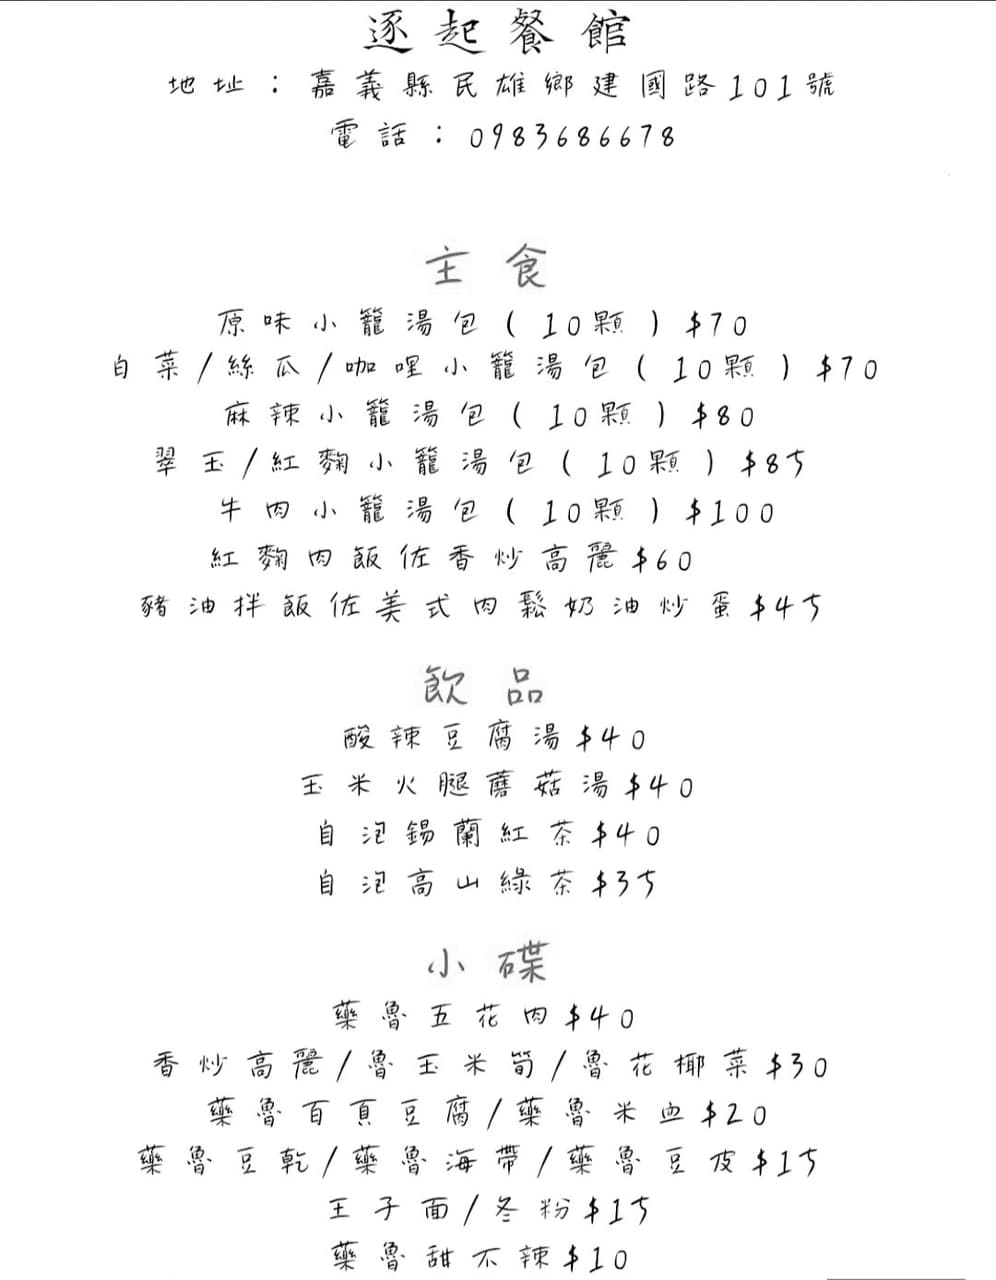 逐起餐館
地址：嘉義縣民雄鄉建國路101號
電話：0983686678
主食
原味小籠湯包(10顆)$70
白菜/絲瓜/咖哩小籠湯包(10顆)$70
麻辣小籠湯包(10顆)$80
翠玉/紅麴小籠湯包(10顆)$85
牛肉小籠湯包(10顆)$100
紅麴肉飯佐香炒高麗$60
豬油拌飯佐美式肉鬆奶油炒蛋$45
飲品
酸辣豆腐湯$40
玉米火腿蘑菇湯$40
自泡錫蘭紅茶$40
自泡高山綠茶$35
小碟
藥魯五花肉$40
香炒高麗/魯玉米筍/魯花椰菜$30
藥魯百頁豆腐/藥魯米血$20
藥魯豆乾/藥魯海帶/藥魯豆皮$15
王子面/冬粉$15
藥魯甜不辣$10